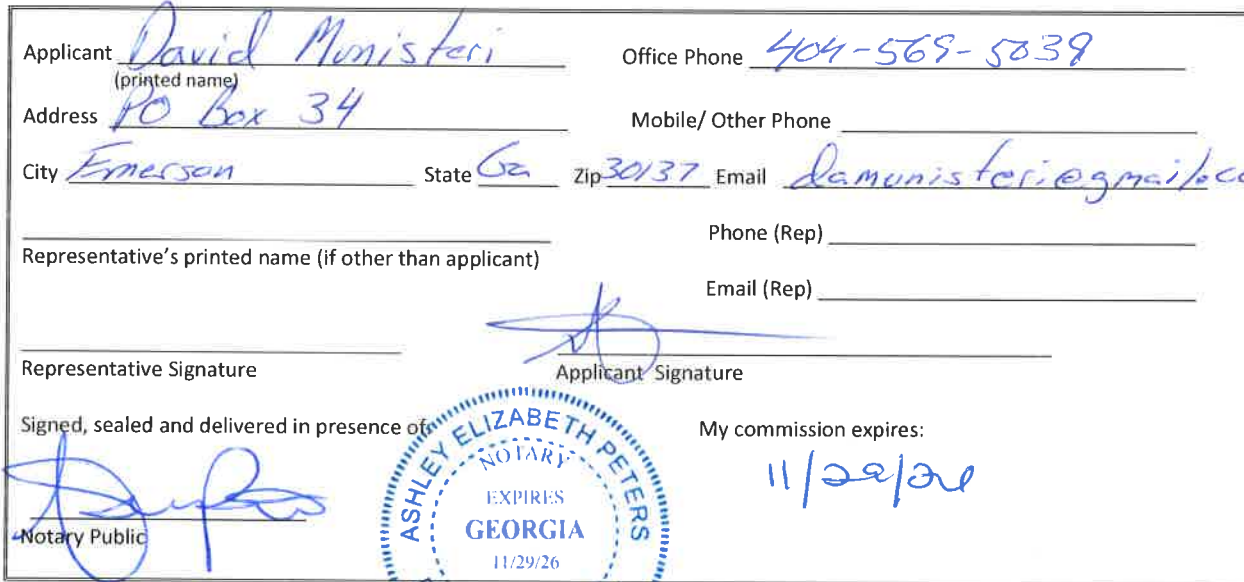 Applicant David Munisteri Office Phone 404-569-5039
(printed name)
Address PO Box 34 Mobile/ Other Phone
City Emerson State Ga Zip 30137 Email damunisteri@gmail.co
Phone (Rep)
Representative's printed name (if other than applicant)
Email (Rep)
Representative Signature Applicant Signature
Signed, sealed and delivered in presence of: My commission expires:
11/29/26
Notary Public
ASHLEY ELIZABETH PETERS
NOTARY
EXPIRES
GEORGIA
11/29/26